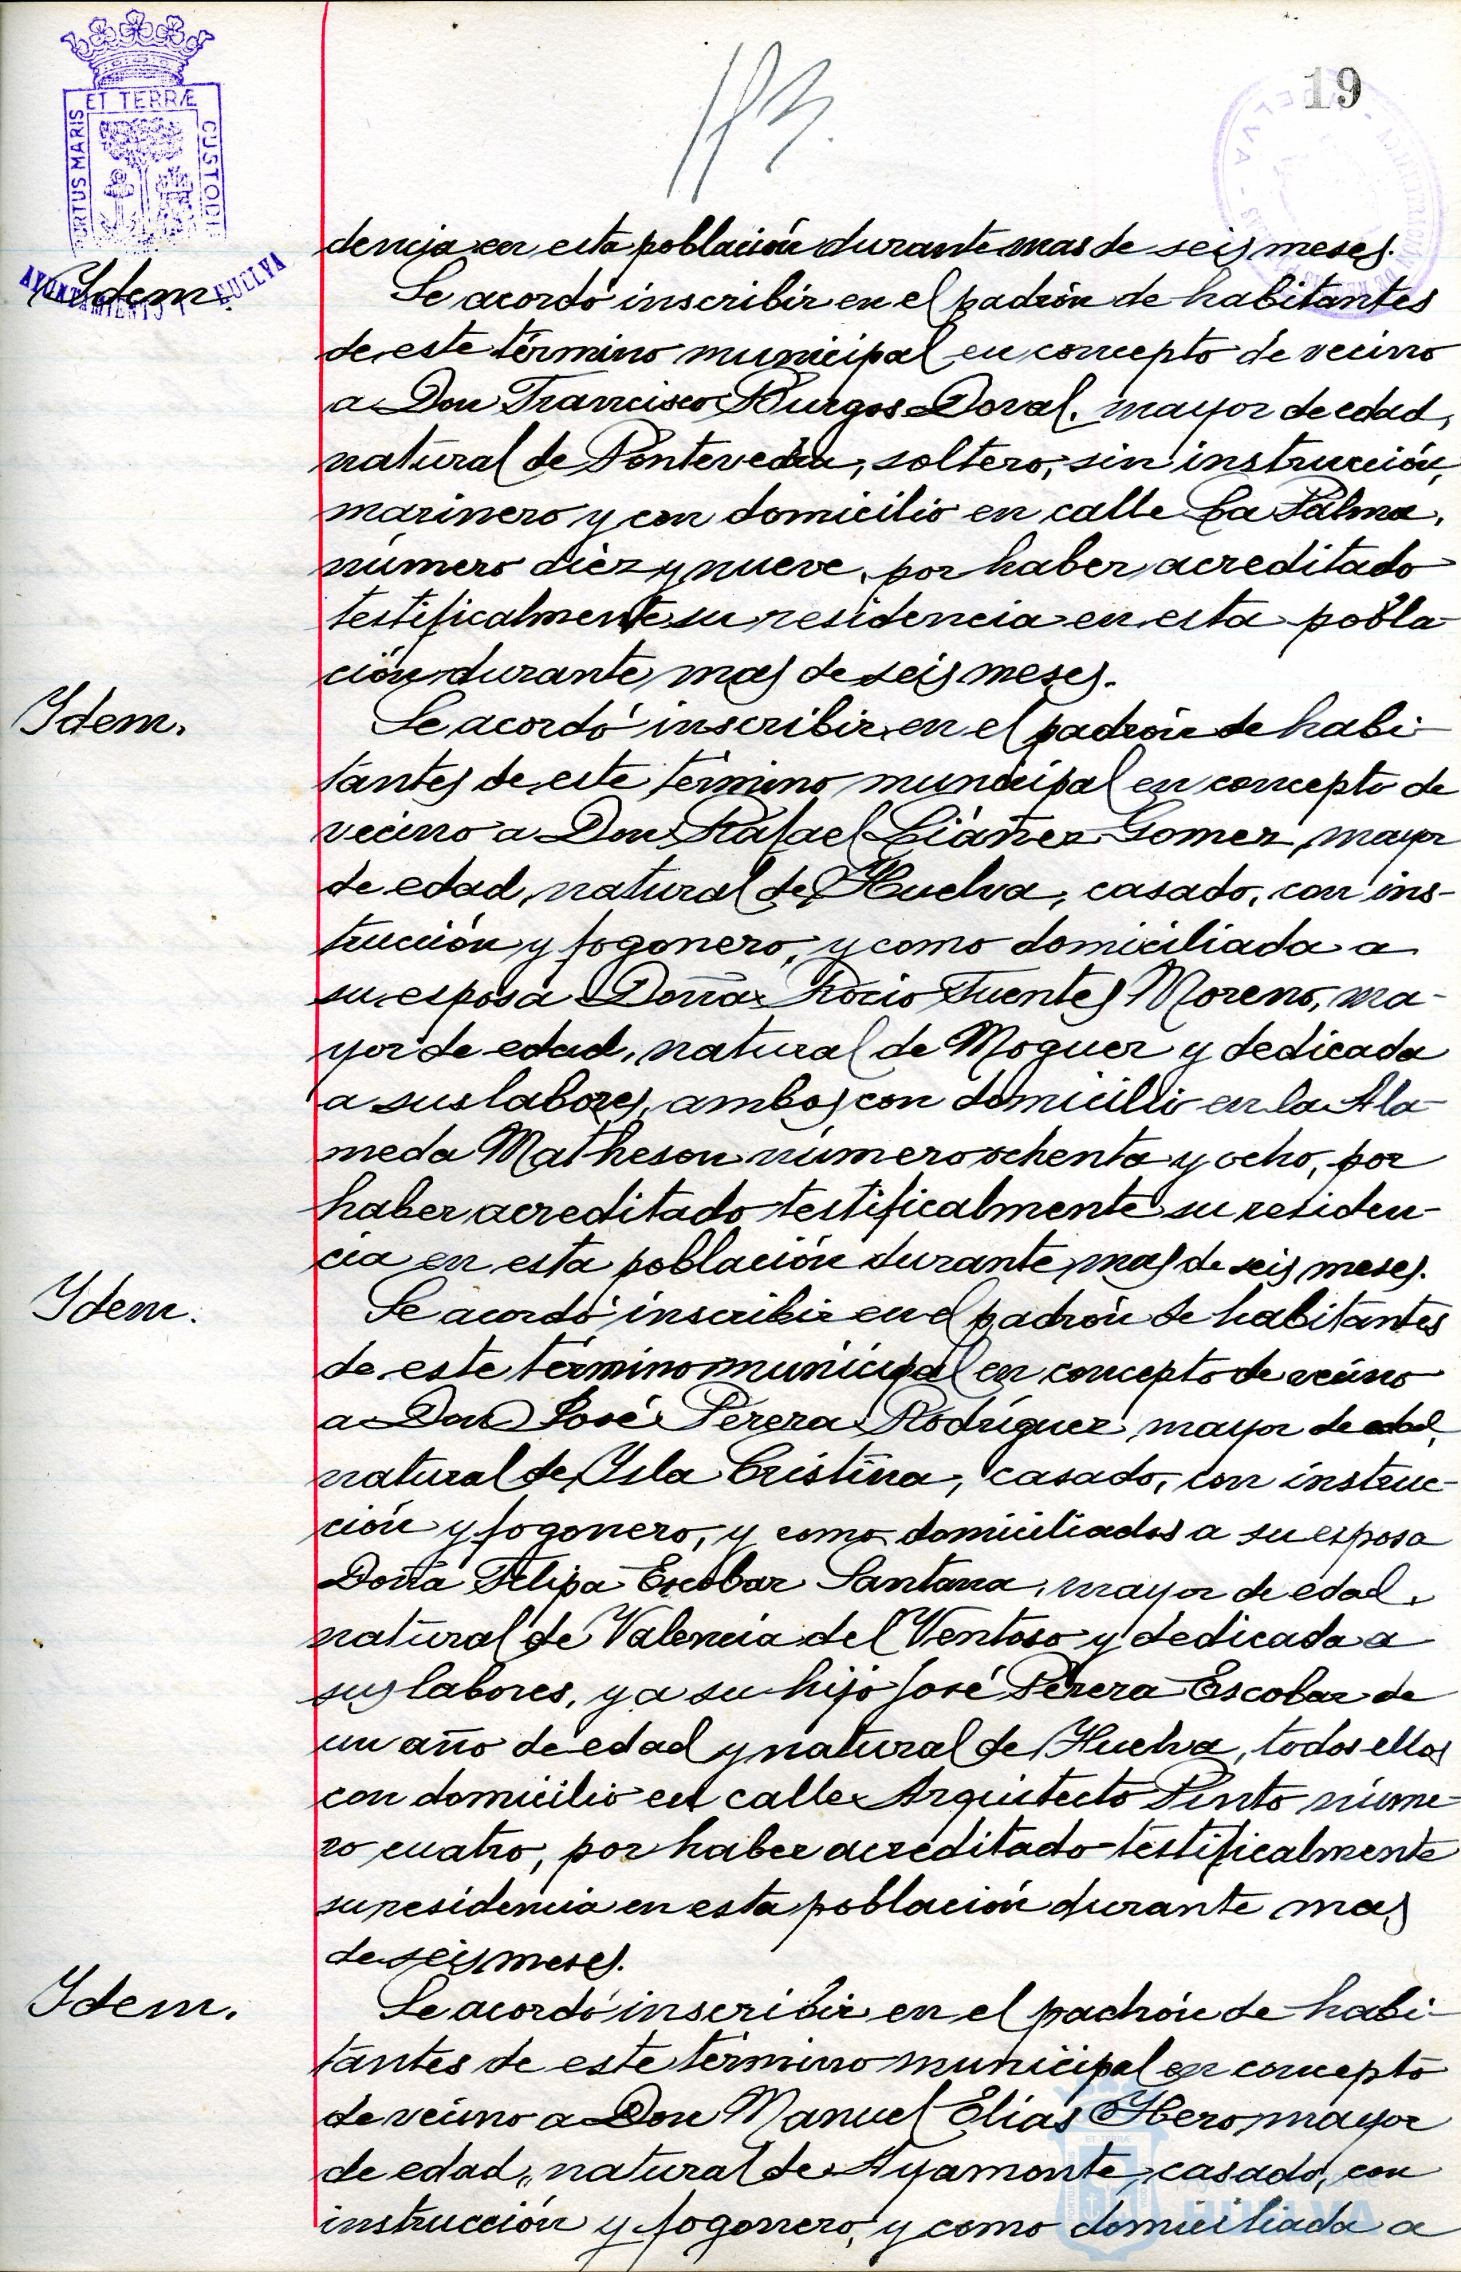 ET TERRÆ
PORTUS MARIS
CUSTODI
AYUNTAMIENTO
HUELVA
19
dencia en esta población durante mas de seis meses.
Idem.
Se acordó inscribir en el padrón de habitantes
de este término municipal en concepto de vecino
a Don Francisco Burgos Doval, mayor de edad,
natural de Pontevedra, soltero, sin instrucción,
marinero y con domicilio en calle La Palma,
número diez y nueve, por haber acreditado
testificalmente su residencia en esta pobla-
ción durante mas de seis meses.
Idem.
Se acordó inscribir en el padrón de habi-
tantes de este término municipal en concepto de
vecino a Don Rafael Liáñez Gomez, mayor
de edad, natural de Huelva, casado, con ins-
trucción y fogonero, y como domiciliada a
su esposa Doña Rocio Fuentes Moreno, ma-
yor de edad, natural de Moguer y dedicada
a sus labores, ambos con domicilio en la Ala-
meda Matheson número ochenta y ocho, por
haber acreditado testificalmente su residen-
cia en esta población durante mas de seis meses.
Idem.
Se acordó inscribir en el padrón de habitantes
de este término municipal en concepto de vecino
a Don José Perera Rodríguez mayor de edad,
natural de Isla Cristina, casado, con instruc-
ción y fogonero, y como domiciliados a su esposa
Doña Felipa Escobar Santana, mayor de edad,
natural de Valencia del Ventoso y dedicada a
sus labores, y a su hijo José Perera Escobar de
un año de edad y natural de Huelva, todos ellos
con domicilio en calle Arquitecto Pinto núme-
ro cuatro, por haber acreditado testificalmente
su residencia en esta población durante mas
de seis meses.
Idem.
Se acordó inscribir en el padrón de habi-
tantes de este término municipal en concepto
de vecino a Don Manuel Elias Obero, mayor
de edad, natural de Ayamonte, casado, con
instrucción y fogonero, y como domiciliada a
Ayuntamiento de
HUELVA